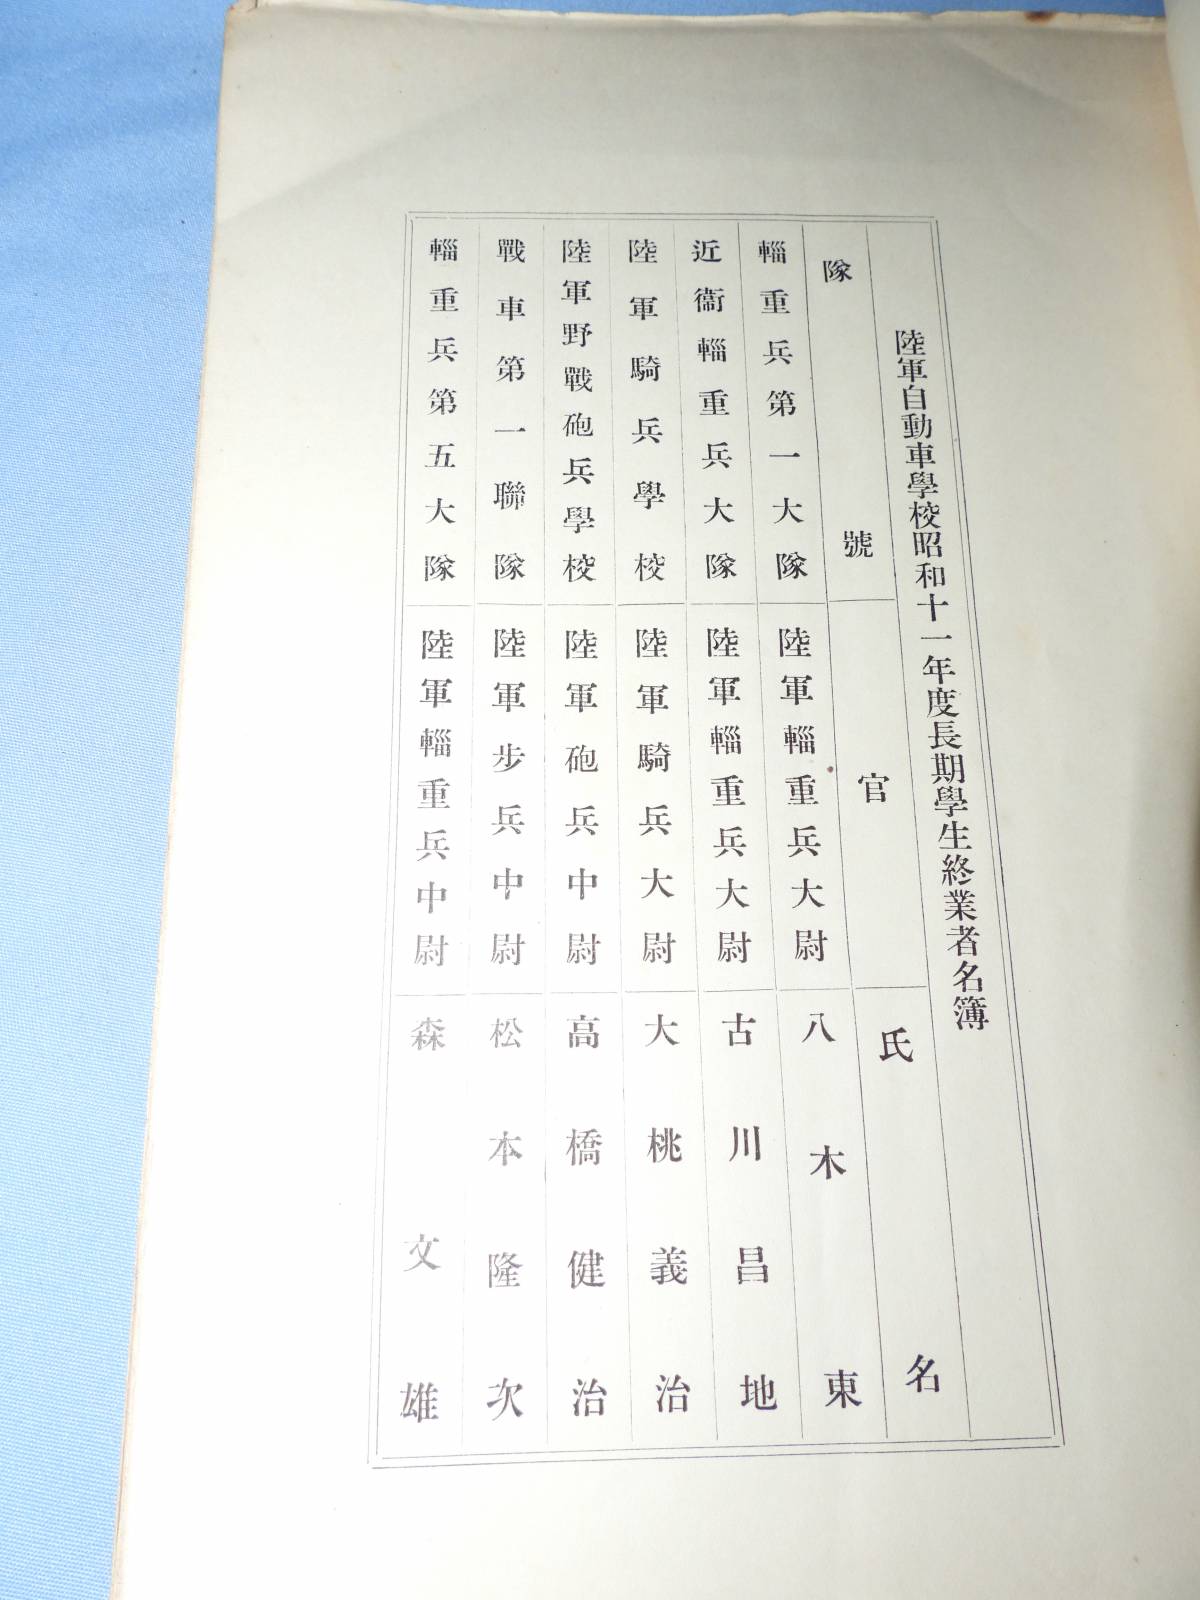 陸軍自動車學校昭和十一年度長期學生終業者名簿
隊號 官 氏名
輜重兵第一大隊 陸軍輜重兵大尉 八木東
近衞輜重兵大隊 陸軍輜重兵大尉 古川昌地
陸軍騎兵學校 陸軍騎兵大尉 大桃義治
陸軍野戰砲兵學校 陸軍砲兵中尉 高橋健治
戰車第一聯隊 陸軍步兵中尉 松本隆次
輜重兵第五大隊 陸軍輜重兵中尉 森文雄